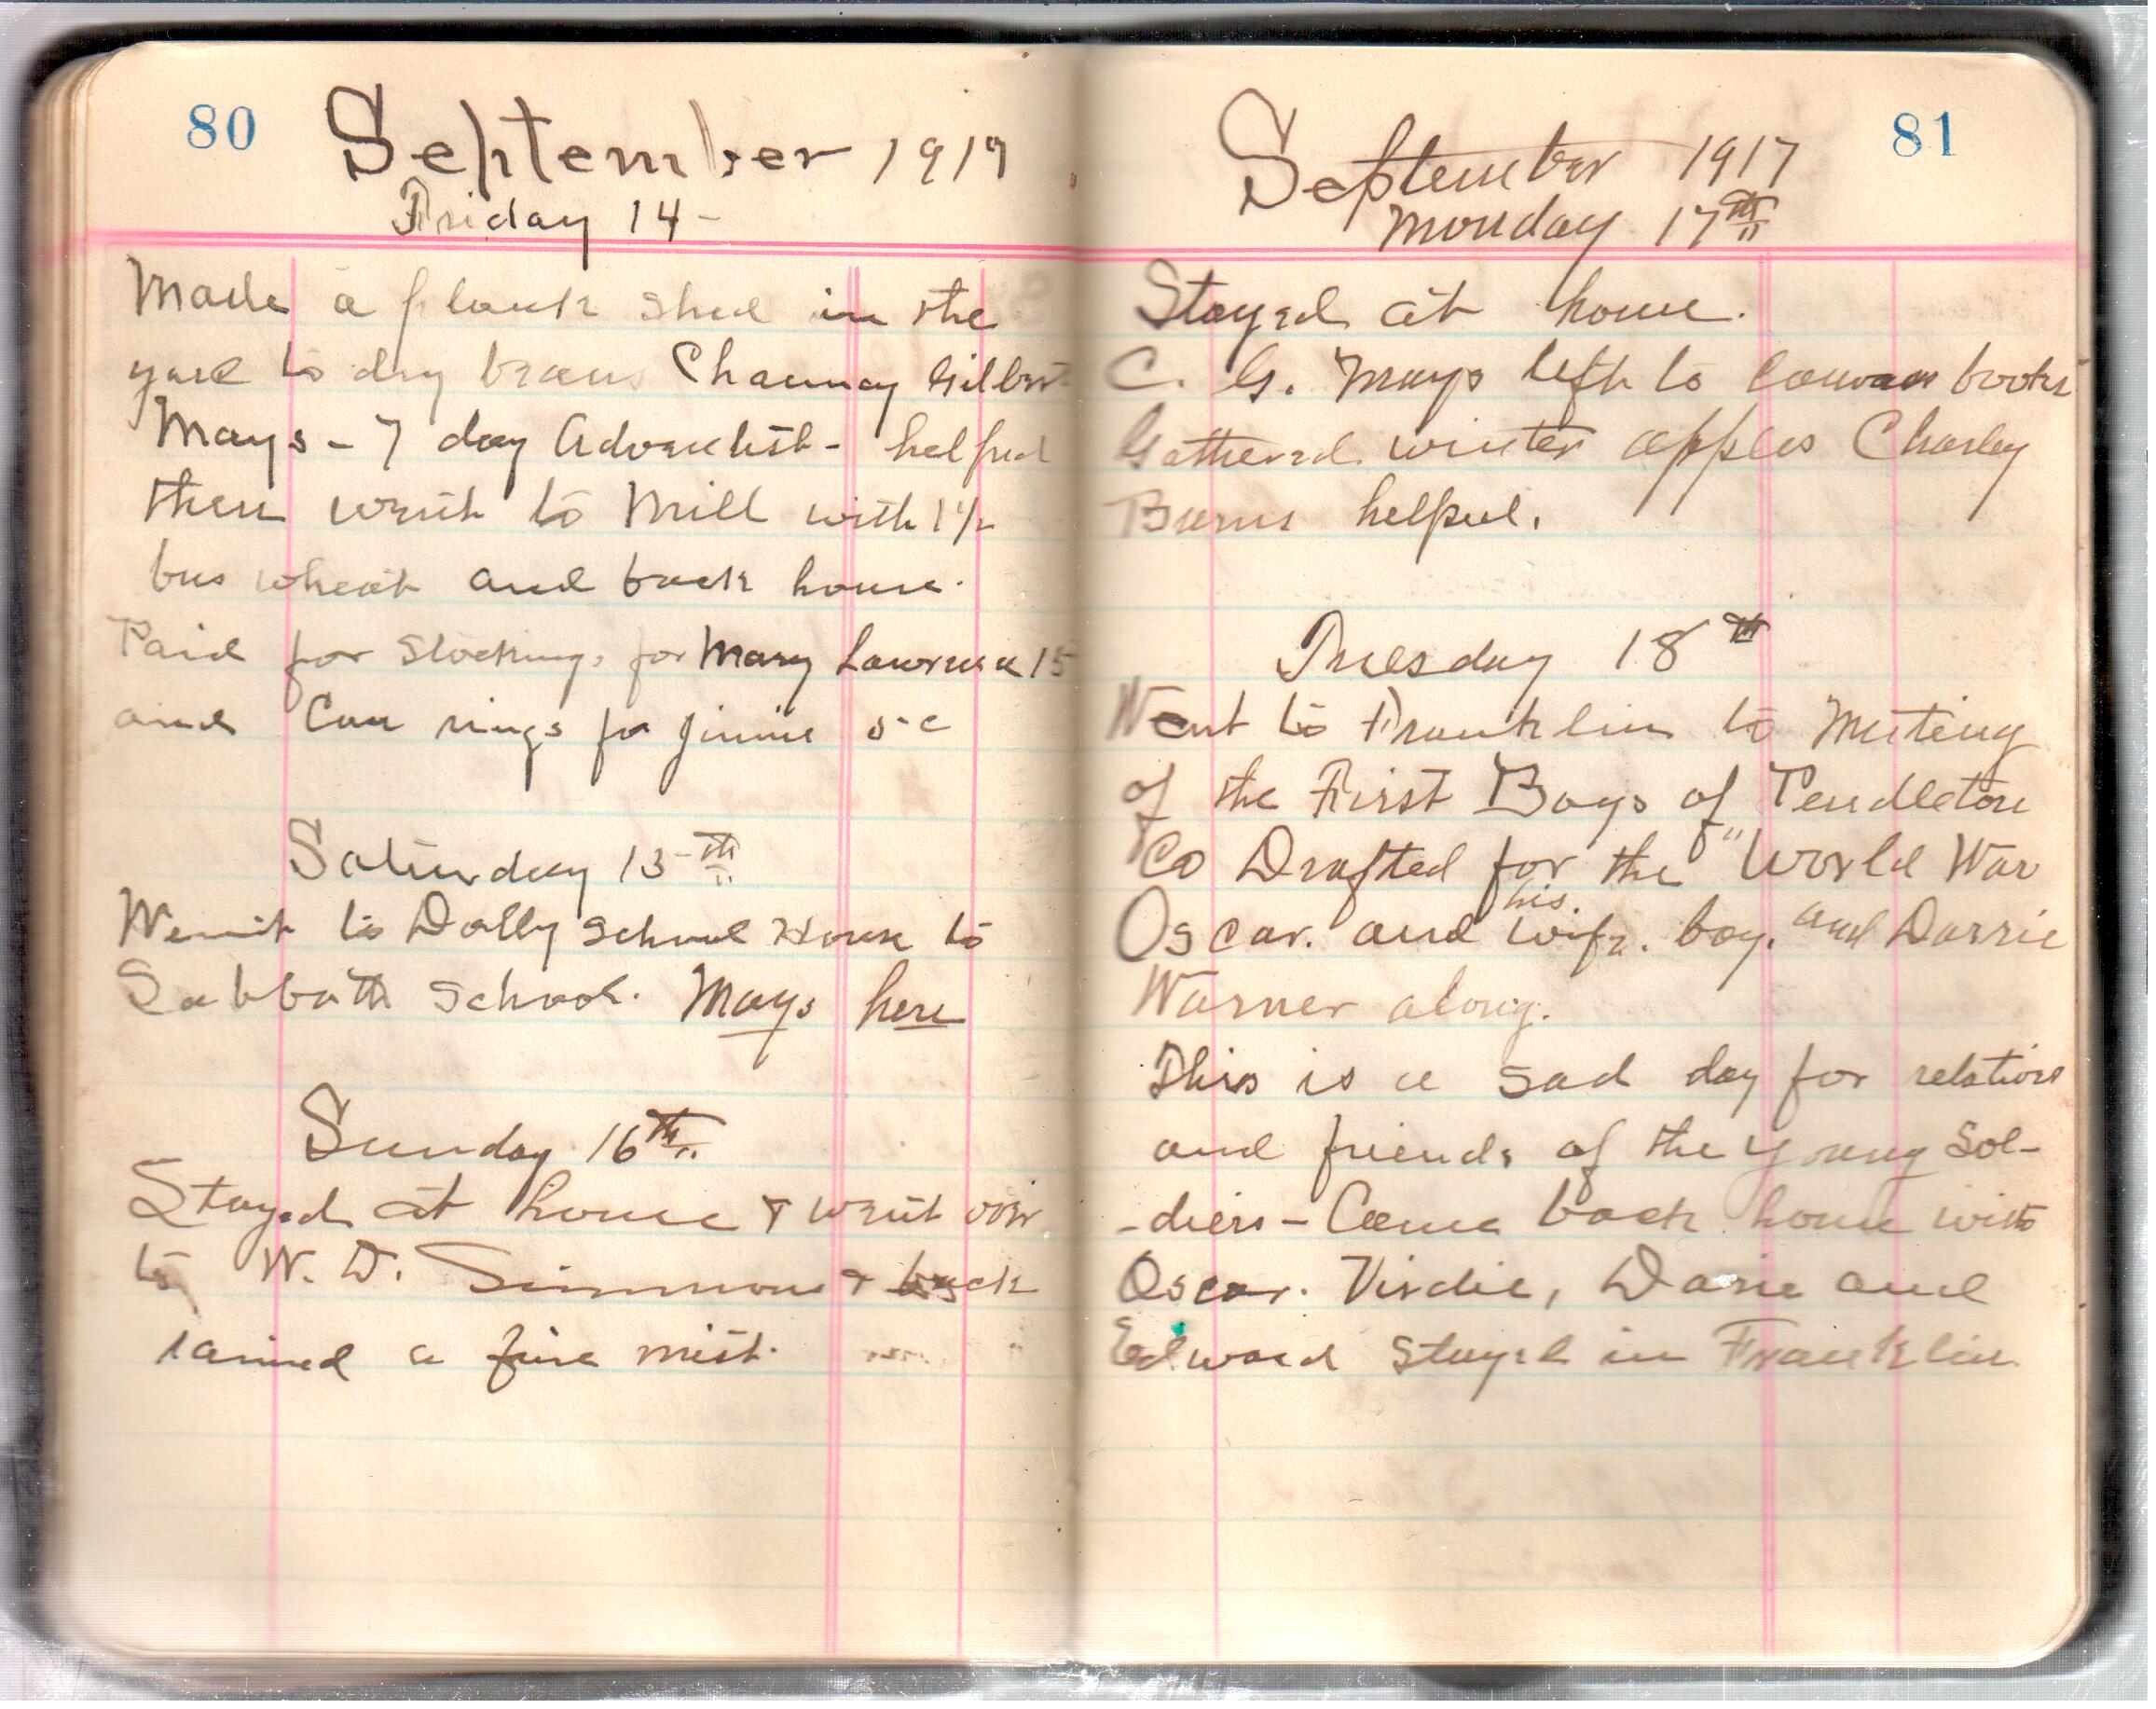 80
September 1919
Friday 14-
Made a plank shed in the
yard to dry beans Chauncy Gilbert
Mays - 7 day Adventist - helped
then went to Mill with 1½
bus wheat and back home.
Paid for Stockings for Mary Lawrence 15
and Can rings for Jinnie 5c
Saturday 15th
Went to Dolly School House to
Sabbath School. Mays here
Sunday 16th
Stayed at home & went over
to W. D. Simmons & back
rained a fine mist.
81
September 1917
Monday 17th
Stayed at home.
C. G. Mays left to canvas books
Gathered winter apples Charley
Burns helped.
Tuesday 18th
Went to Franklin to Meeting
of the First Boys of Pendleton
Co Drafted for the "World War
Oscar. and his wife. boy. and Dassie
Warner along.
This is a sad day for relations
and friends of the young Sol-
-diers - Came back home with
Oscar. Virdie, Dasie and
Edward stayed in Franklin